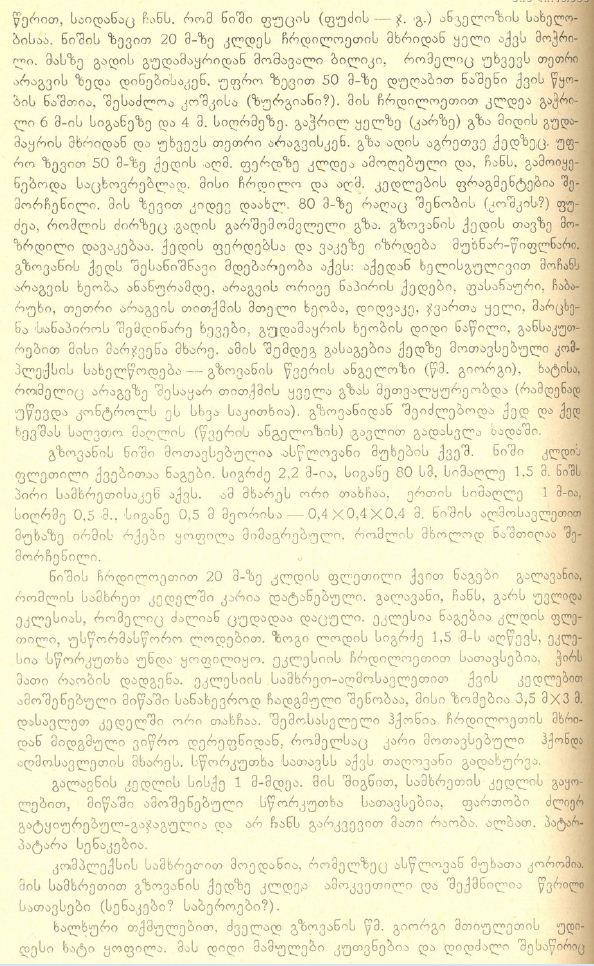 წერით, საიდანაც ჩანს. რომ ნიში ფუცის (ფუძის — ჯ. გ.) ანგელოზის სახელო-
ბისაა. ნიშის ზევით 20 მ-ზე კლდეს ჩრდილოეთის მხრიდან ყელი აქვს მოჭრი-
ლი. მასზე გადის გუდამაყრიდან მომავალი ბილიკი, რომელიც უხვევს თეთრი
არაგვის ზედა დინებისაკენ. უფრო ზევით 50 მ-ზე დუღაბით ნაშენი ქვის წყო-
ბის ნაშთია, შესაძლოა კოშკისა (ზურგიანი?). მის ჩრდილოეთით კლდეა გაჭრი-
ლი 6 მ-ის სიგანეზე და 4 მ. სიღრმეზე. გაჭრილ ყელზე (კარზე) გზა მიდის გუდა-
მაყრის მხრიდან და უხვევს თეთრი არაგვისკენ. გზა ადის აგრეთვე ქედზეც. უფ-
რო ზევით 50 მ-ზე ქედის აღმ. ფერდზე კლდეა ამოღებული და, ჩანს, გამოიყე-
ნებოდა საცხოვრებლად. მისი ჩრდილო და აღმ. კედლების ფრაგმენტებია შე-
მორჩენილი. მის ზევით კიდევ დაახლ. 80 მ-ზე რაღაც შენობის (კოშკის?) ფუ-
ძეა, რომლის ძირზეც გადის გარშემომვლელი გზა. გზოვანის ქედის თავზე მო-
ზრდილი დავაკებაა. ქედის ფერდებსა და ვაკეზე იზრდება მუხნარ-წიფლნარი.
გზოვანის ქედს შესანიშნავი მდებარეობა აქვს: აქედან ხელისგულივით მოჩანს
არაგვის ხეობა ანანურამდე, არაგვის ორივე ნაპირის ქედები, ფასანაური, ჩაბა-
რუხი, თეთრი არაგვის თითქმის მთელი ხეობა, დიდვაკე, ჯვართა ყელი, მარცხე-
ნა სანაპიროს შემდინარე ხევები, გუდამაყრის ხეობის დიდი ნაწილი, განსაკუთ-
რებით მისი მარჯვენა მხარე. ამის შემდეგ გასაგებია ქედზე მოთავსებული კომ-
პლექსის სახელწოდება — გზოვანის წვერის ანგელოზი (წმ. გიორგი), ხატისა,
რომელიც არაგვზე შესაყარ თითქმის ყველა გზას მეთვალყურეობდა (რამდენად
უწევდა კონტროლს ეს სხვა საკითხია). გზოვანიდან შეიძლებოდა ქედ და ქედ
ხევშას საღვთო მაღლის (წვერის ანგელოზის) გავლით გადასვლა ხადაში.
გზოვანის ნიში მოთავსებულია ასწლოვანი მუხების ქვეშ. ნიში კლდის
ფლეთილი ქვებითაა ნაგები. სიგრძე 2,2 მ-ია, სიგანე 80 სმ, სიმაღლე 1,5 მ. ნიშს
პირი სამხრეთისაკენ აქვს. ამ მხარეს ორი თახჩაა. ერთის სიმაღლე 1 მ-ია,
სიღრმე 0,5 მ., სიგანე 0,5 მ მეორისა — 0,4×0,4×0,4 მ. ნიშის აღმოსავლეთით
მუხაზე ირმის რქები ყოფილა მიმაგრებული, რომლის მხოლოდ ნაშთიღაა შე-
მორჩენილი.
ნიშის ჩრდილოეთით 20 მ-ზე კლდის ფლეთილი ქვით ნაგები გალავანია,
რომლის სამხრეთ კედელში კარია დატანებული. გალავანი, ჩანს, გარს უვლიდა
ეკლესიას, რომელიც ძალიან ცუდადაა დაცული. ეკლესია ნაგებია კლდის ფლე-
თილი, უსწორმასწორო ლოდებით. ზოგი ლოდის სიგრძე 1,5 მ-ს აღწევს, ეკლე-
სია სწორკუთხა უნდა ყოფილიყო. ეკლესიის ჩრდილოეთით სათავსებია, ჭირს
მათი რაობის დადგენა. ეკლესიის სამხრეთ-აღმოსავლეთით ქვის კედლებით
ამოშენებულ მიწაში სანახევროდ ჩადგმული შენობაა, მისი ზომებია 3,5 მ×3 მ.
დასავლეთ კედელში ორი თახჩაა. შემოსასვლელი ჰქონია ჩრდილოეთის მხრი-
დან მიდგმული ვიწრო დერეფნიდან, რომელსაც კარი მოთავსებული ჰქონდა
აღმოსავლეთის მხარეს. სწორკუთხა სათავსს აქვს თაღოვანი გადახურვა.
გალავნის კედლის სისქე 1 მ-მდეა. მის შიგნით, სამხრეთის კედლის გაყო-
ლებით, მიწაში ამოშენებული სწორკუთხა სათავსებია, ფართობი ძლიერ
გატყიურებულ-გაჯაგულია და არ ჩანს გარკვევით მათი რაობა. ალბათ, პატარ-
პატარა სენაკებია.
კომპლექსის სამხრეთით მოედანია, რომელზეც ასწლოვან მუხათა კორომია.
მის სამხრეთით გზოვანის ქედზე კლდეა ამოკვეთილი და შექმნილია წვრილი
სათავსები (სენაკები? საბეროები?).
ხალხური თქმულებით, ძველად გზოვანის წმ. გიორგი მთიულეთის უდი-
დესი ხატი ყოფილა. მას დიდი მამულები კუთვნებია და დიდძალი შესაწირიც